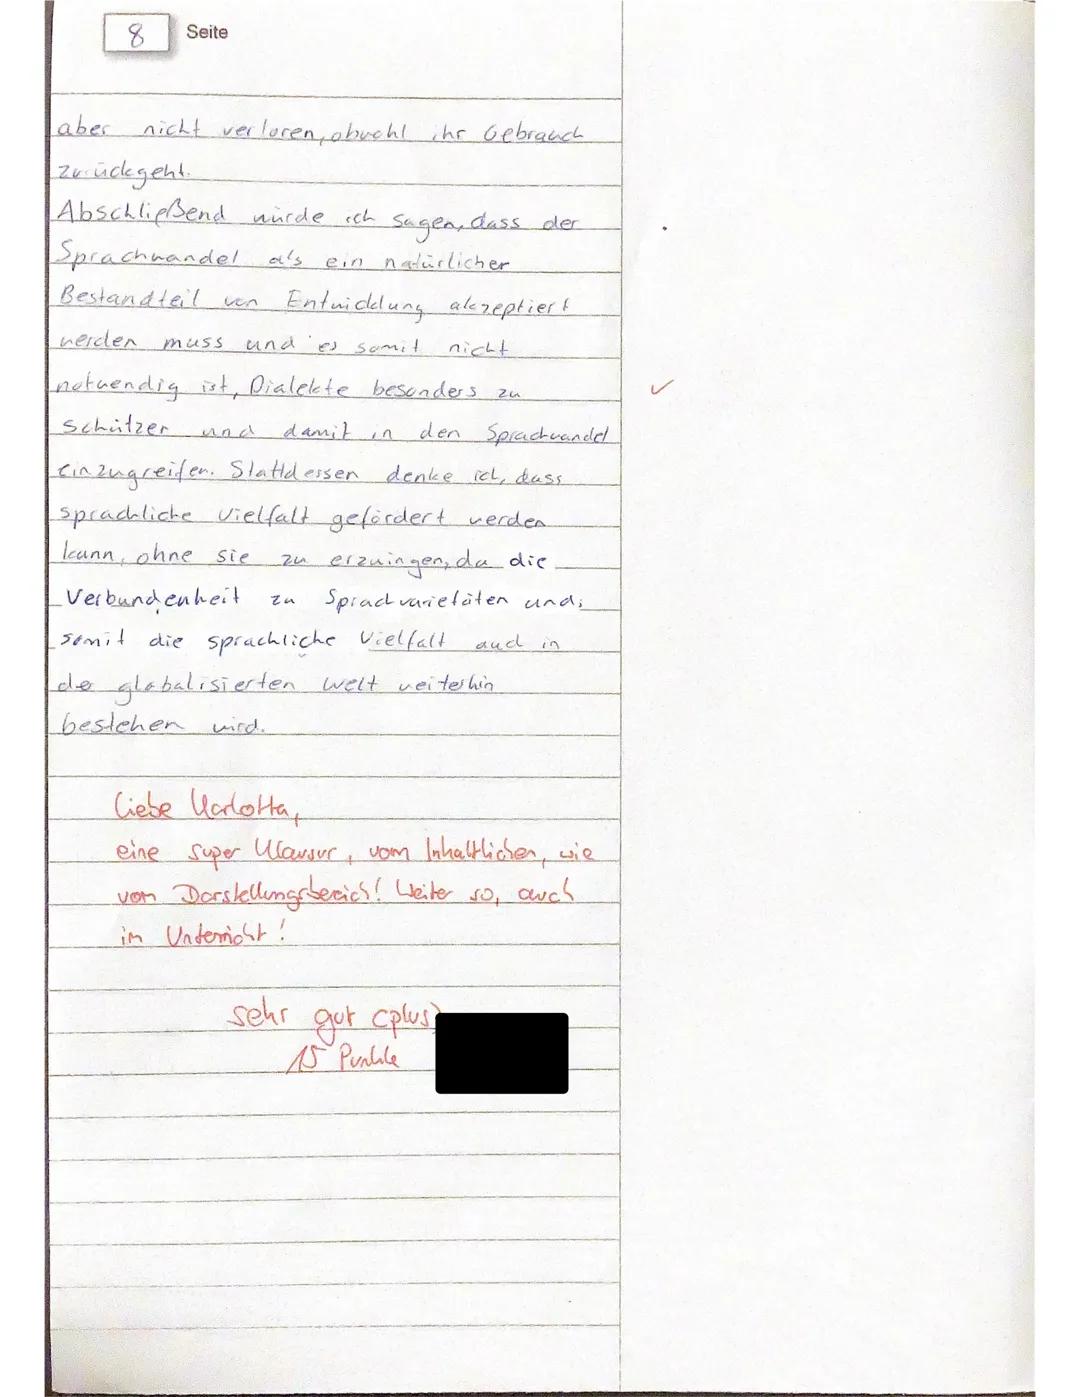 8 Seite
aber nicht verloren, obwohl ihr Gebrauch
zurückgeht.
Abschließend würde ich sagen, dass der
Sprachwandel als ein natürlicher
Bestandteil von Entwicklung akzeptiert
werden muss und es somit nicht
notwendig ist, Dialekte besonders zu
schützen und damit in den Sprachwandel
einzugreifen. Stattdessen denke ich, dass
sprachliche Vielfalt gefördert werden
kann, ohne sie zu erzwingen, da die
Verbundenheit zu Sprachvarietäten und
somit die sprachliche Vielfalt auch in
der globalisierten Welt weiterhin
bestehen wird.
Liebe Karlotta,
eine super Klausur, vom Inhaltlichen, wie
vom Darstellungsbereich! Weiter so, auch
im Unterricht!
sehr gut (plus)
15 Punkte